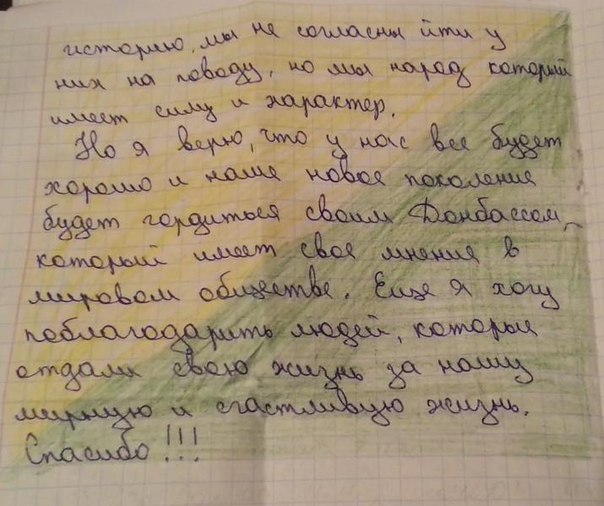 историю, мы не согласны йти у
них на поводу, но мы народ который
имеет силу и характер.
Но я верю, что у нас все будет
хорошо и наше новое поколение
будет гордиться своим Донбассом,
который имеет свое мнение в
мировом обществе. Еще я хочу
поблагодарить людей, которые
отдали свою жизнь за нашу
мирную и счастливую жизнь.
Спасибо!!!